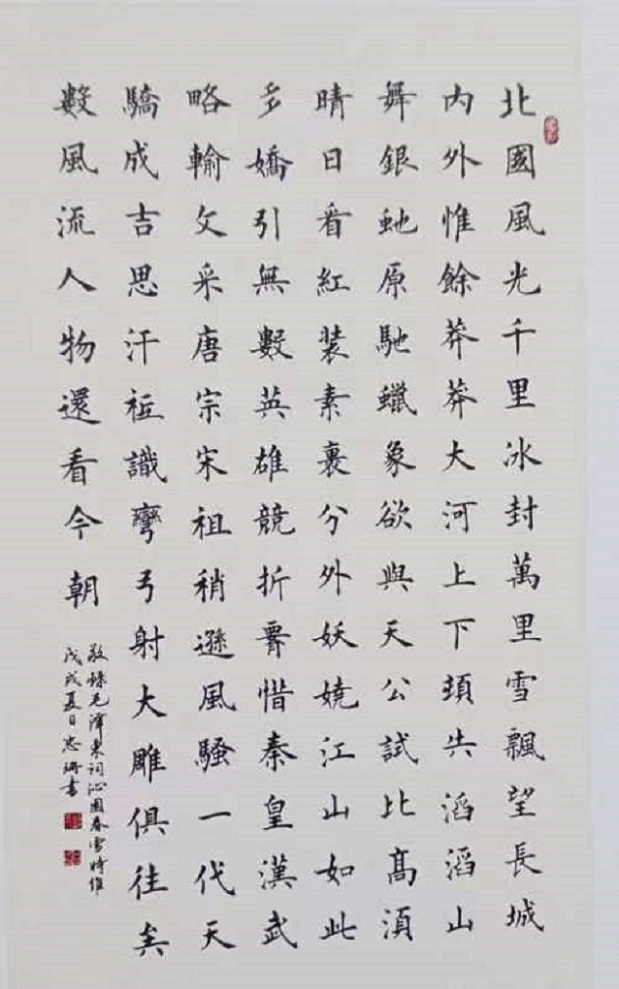 北國風光千里冰封萬里雪飄望長城
内外惟餘莽莽大河上下頓失滔滔山
舞銀虵原馳蠟象欲與天公試比高須
晴日看紅装素裹分外妖嬈江山如此
多嬌引無數英雄競折惜秦皇漢武
略輸文采唐宗宋祖稍遜風騷一代天
驕成吉思汗祗識彎弓射大雕俱往矣
數風流人物還看今朝
敬錄毛澤東詞沁園春雪時維
戊戌夏日忠珊書